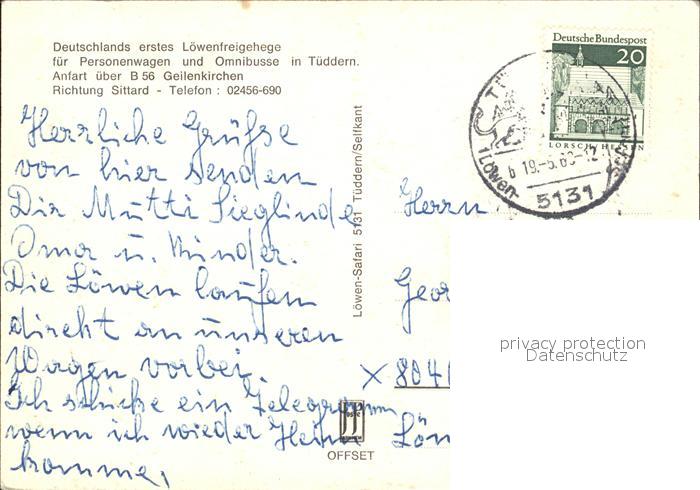 Deutschlands erstes Löwenfreigehege
für Personenwagen und Omnibusse in Tüddern.
Anfart über B 56 Geilenkirchen
Richtung Sittard - Telefon : 02456-690
Herzliche Grüße
von hier senden
Dir Mutti Sieglinde
Oma u. Kinder.
Die Löwen laufen
direkt an unseren
Wagen vorbei.
Ich schicke ein Telegramm
wenn ich wieder Heim
komme,
Löwen-Safari 5131 Tüddern/Selfkant
OFFSET
Deutsche Bundespost
20
LORSCH/HESSEN
Löwen-
5131
Herrn
Geor
8041
Lön
privacy protection
Datenschutz